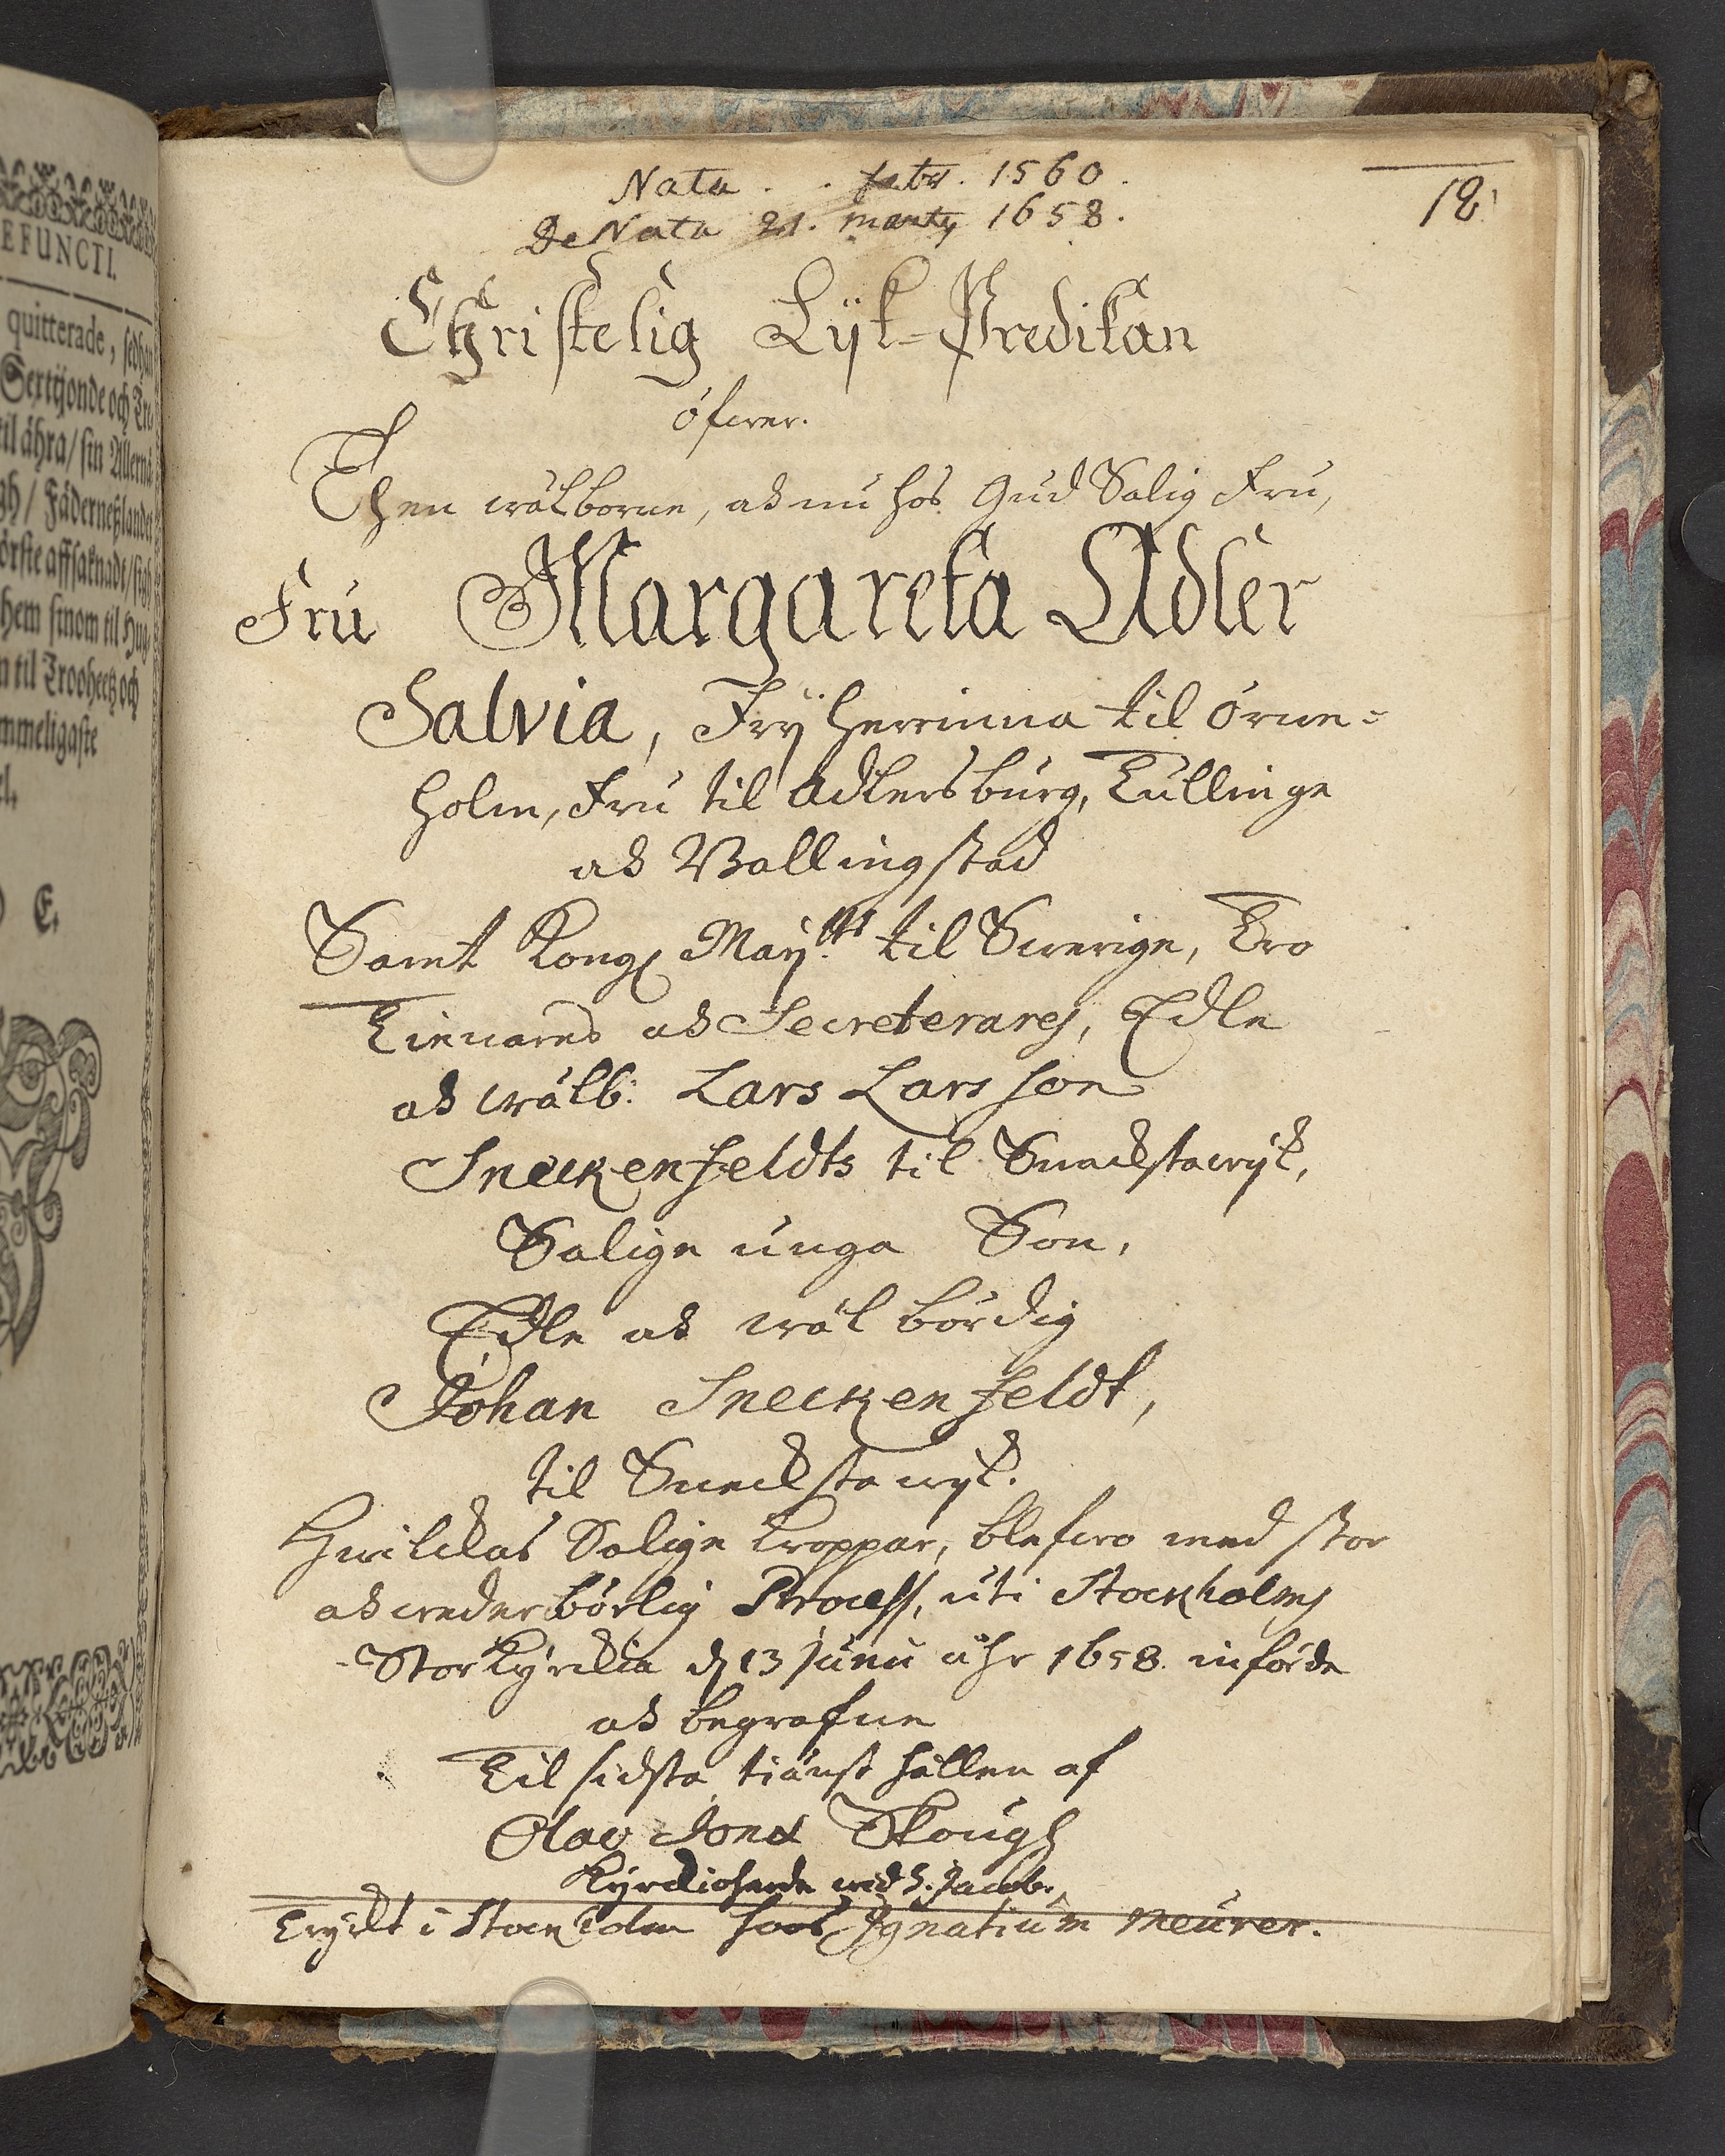 EFUNCTI.
quitterade, sedhan
Sextijonde och Tre
til ähra/ sin Allernå
gh/ Fäderneßlandet
örste affsaknadt/ sigh
hem sinom til Hug
n til Trooheetz och
mmeligaste
E.
Nata . . febr. 1560.
DeNata 21. marty 1658.
12
Christelig Lÿk-Predikan
öfwer.
Then wälborne, ok nu hos Gud Salig Fru,
Fru Margareta Adler
Salvia, Frÿherrinna til örne-
holm, Fru til Adlersburg, Tullinge
ok Wallingstad
Samt Kongl Maÿ:ttz til Swerige, Tro
Tienares ok Secreterares, Edle
ok wälb: Lars Larsson
Sneckenfeldts til Sneckstawÿk,
Salige unga Son,
Edle ok wälbördig
Johan Sneckenfeldt,
til Sneckstawÿk.
Hwilckas Salige kroppar, blefwo med stor
ok wederbörlig Process, uti Stockholms
Storkÿrckia d 13 Junii åhr 1658. införde
ok begrafne
Til sidsta tiänst hållen af
Olao Jonæ Skough
Kÿrckioherde wid S. Jacob.
Trÿckt i Stockholm hoos Ignatium Meurer.